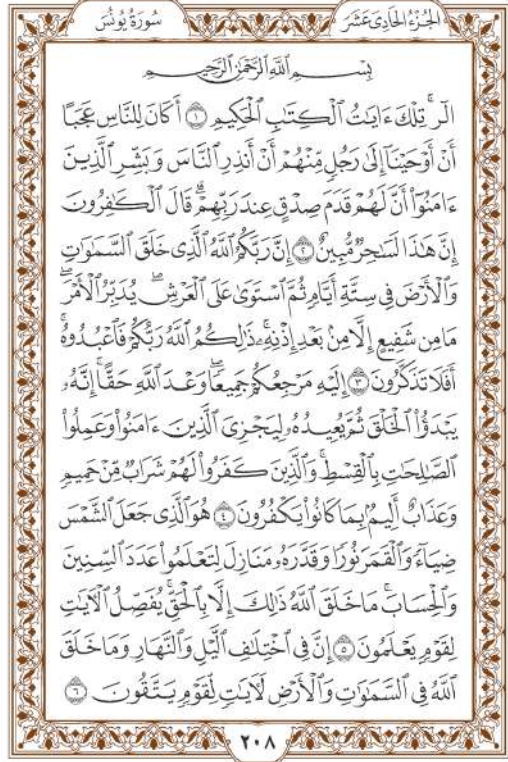 الجُزْءُ الحَادِى عَشَرَ سُورَةُ يُونُسَ
بِسْمِ ٱللَّهِ ٱلرَّحْمَٰنِ ٱلرَّحِيمِ
الٓر ۚ تِلْكَ ءَايَٰتُ ٱلْكِتَٰبِ ٱلْحَكِيمِ ١ أَكَانَ لِلنَّاسِ عَجَبًا
أَنْ أَوْحَيْنَآ إِلَىٰ رَجُلٍ مِّنْهُمْ أَنْ أَنذِرِ ٱلنَّاسَ وَبَشِّرِ ٱلَّذِينَ
ءَامَنُوٓا۟ أَنَّ لَهُمْ قَدَمَ صِدْقٍ عِندَ رَبِّهِمْ ۗ قَالَ ٱلْكَٰفِرُونَ
إِنَّ هَٰذَا لَسَٰحِرٌ مُّبِينٌ ٢ إِنَّ رَبَّكُمُ ٱللَّهُ ٱلَّذِى خَلَقَ ٱلسَّمَٰوَٰتِ
وَٱلْأَرْضَ فِى سِتَّةِ أَيَّامٍ ثُمَّ ٱسْتَوَىٰ عَلَى ٱلْعَرْشِ ۖ يُدَبِّرُ ٱلْأَمْرَ ۖ
مَا مِن شَفِيعٍ إِلَّا مِنۢ بَعْدِ إِذْنِهِۦ ۚ ذَٰلِكُمُ ٱللَّهُ رَبُّكُمْ فَٱعْبُدُوهُ ۚ
أَفَلَا تَذَكَّرُونَ ٣ إِلَيْهِ مَرْجِعُكُمْ جَمِيعًا ۖ وَعْدَ ٱللَّهِ حَقًّا ۚ إِنَّهُۥ
يَبْدَؤُا۟ ٱلْخَلْقَ ثُمَّ يُعِيدُهُۥ لِيَجْزِىَ ٱلَّذِينَ ءَامَنُوا۟ وَعَمِلُوا۟
ٱلصَّٰلِحَٰتِ بِٱلْقِسْطِ ۚ وَٱلَّذِينَ كَفَرُوا۟ لَهُمْ شَرَابٌ مِّنْ حَمِيمٍ
وَعَذَابٌ أَلِيمٌۢ بِمَا كَانُوا۟ يَكْفُرُونَ ٤ هُوَ ٱلَّذِى جَعَلَ ٱلشَّمْسَ
ضِيَآءً وَٱلْقَمَرَ نُورًا وَقَدَّرَهُۥ مَنَازِلَ لِتَعْلَمُوا۟ عَدَدَ ٱلسِّنِينَ
وَٱلْحِسَابَ ۚ مَا خَلَقَ ٱللَّهُ ذَٰلِكَ إِلَّا بِٱلْحَقِّ ۚ يُفَصِّلُ ٱلْءَايَٰتِ
لِقَوْمٍ يَعْلَمُونَ ٥ إِنَّ فِى ٱخْتِلَٰفِ ٱلَّيْلِ وَٱلنَّهَارِ وَمَا خَلَقَ
ٱللَّهُ فِى ٱلسَّمَٰوَٰتِ وَٱلْأَرْضِ لَءَايَٰتٍ لِّقَوْمٍ يَتَّقُونَ ٦
٢٠٨